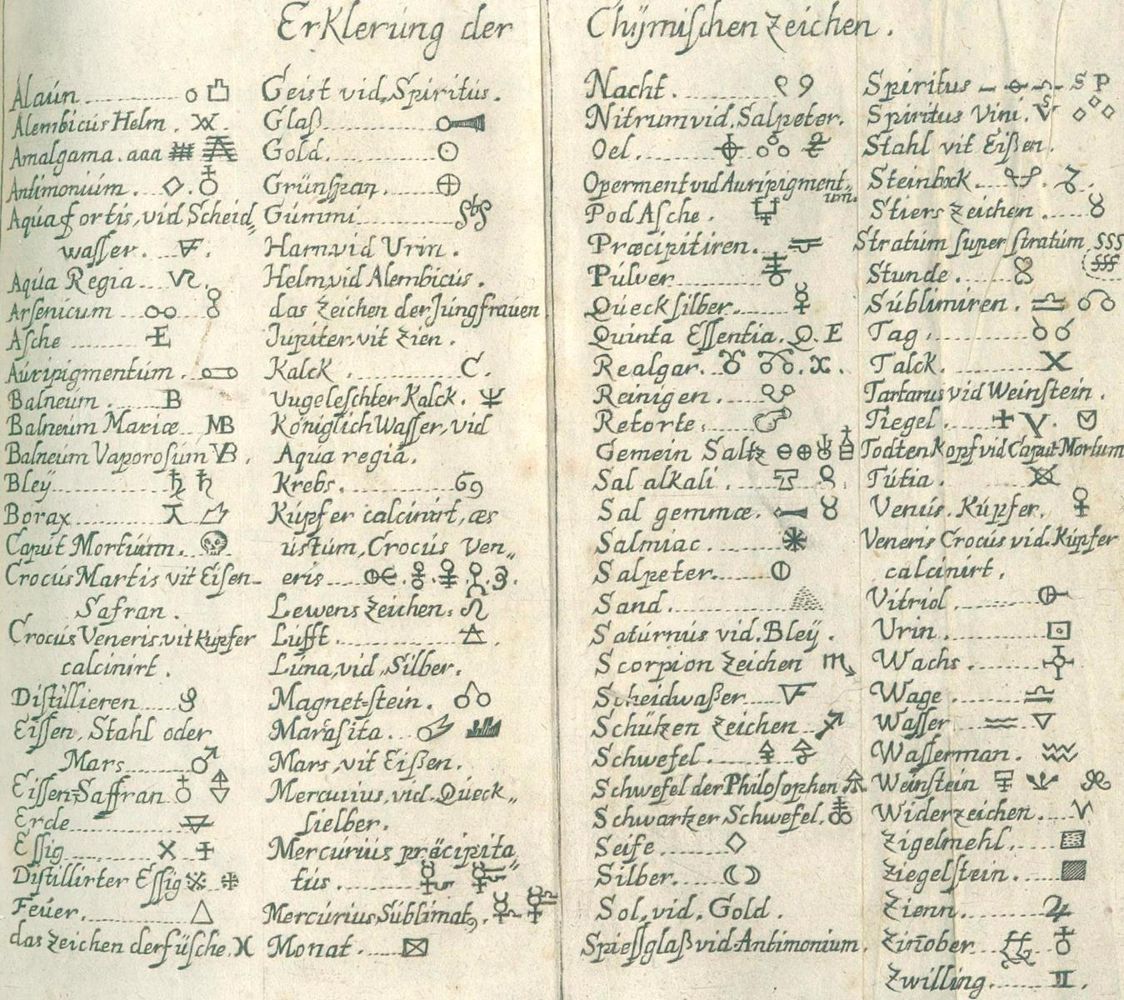 ErKlerung der Chÿmischen zeichen.
Alaun
Alembicus Helm.
Amalgama. aaa
Antimonium.
Aqua fortis, vid Scheid„
wasser.
Aqua Regia
Arsenicum
Asche
Auripigmentum.
Balneum. B
Balneum Mariæ MB
Balneum Vaporosum VB.
Bleÿ
Borax
Caput Mortuum.
Crocus Martis vit Eisen-
Safran.
Crocus Veneris, vit kupfer
calcinirt.
Distillieren
Eissen, Stahl oder
Mars
Eissen-Saffran
Erde
Essig
Distillirter Essig
Feuer.
das zeichen der füsche.
Geist vid. Spiritus.
Glaß
Gold.
Grünspan.
Gummi
Harn vid Urin.
Helm vid Alembicus.
das zeichen der Jungfrauen
Jupiter vit zien.
Kalck. C.
Vugeleschter Kalck.
Königlich Wasser, vid
Aqua regia.
Krebs.
Kupfer calcinirt, æs
ustum, Crocus Ven„
eris
Lewens zeichen:
Lufft
Luna, vid, Silber.
Magnet-stein.
Marasita.
Mars, vit Eißen.
Mercurius, vid. Queck„
sielber.
Mercurius präcipita„
tus.
Mercurius Sublimat,
Monat.
Nacht.
Nitrum vid. Salpeter.
Oel.
Operment vid Auripigment„
um.
Pod Asche.
Præcipitiren.
Pulver
Queck silber.
Quinta Essentia. Q. E
Realgar.
Reinigen.
Retorte:
Gemein Saltz
Sal alkali.
Sal gemmæ.
Salmiac.
Salpeter
Sand.
Saturnus vid. Bleÿ.
Scorpion zeichen
Scheidwaßer
Schützen zeichen
Schwefel.
Schwefel der Philosophen
Schwartzer Schwefel.
Seife
Silber.
Sol, vid. Gold.
Spiessglaß vid Antimonium.
Spiritus
Spiritus Vini.
Stahl vit Eißen.
Steinbock
Stiers zeichen
Stratum super stratum SSS
Stunde
Sublimiren
Tag.
Talck. X
Tartarus vid Weinstein.
Tiegel
Todten kopf vid Caput Mortum
Tutia.
Venus. Kupfer.
Veneris Crocus vid. Kupfer
calcinirt.
Vitriol
Urin
Wachs.
Wage
Wasser
Wasserman.
Weinstein
Widerzeichen.
Zigelmehl.
Ziegelstein.
Zienn.
Zinober
Zwilling.